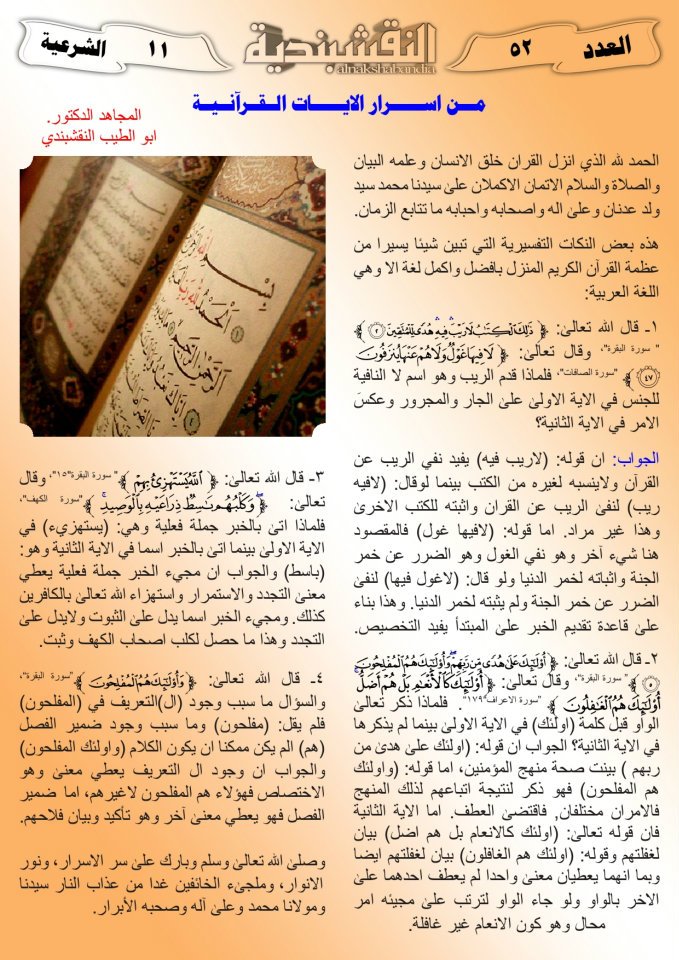 العدد ٥٢
النقشبندية
alnakshabandia
١١ الشرعية
من اسرار الايات القرآنية
المجاهد الدكتور.
ابو الطيب النقشبندي
الحمد لله الذي انزل القران خلق الانسان وعلمه البيان
والصلاة والسلام الاتمان الاكملان على سيدنا محمد سيد
ولد عدنان وعلى اله واصحابه واحبابه ما تتابع الزمان.
هذه بعض النكات التفسيرية التي تبين شيئا يسيرا من
عظمة القرآن الكريم المنزل بافضل واكمل لغة الا وهي
اللغة العربية:
١ـ قال الله تعالى: ﴿ ذَٰلِكَ الْكِتَابُ لَا رَيْبَ فِيهِ هُدًى لِّلْمُتَّقِينَ ٢ ﴾
"سورة البقرة"، وقال تعالى: ﴿ لَا فِيهَا غَوْلٌ وَلَا هُمْ عَنْهَا يُنزَفُونَ
٤٧ ﴾ "سورة الصافات"، فلماذا قدم الريب وهو اسم لا النافية
للجنس في الاية الاولى على الجار والمجرور وعكس
الامر في الاية الثانية؟
الجواب: ان قوله: (لاريب فيه) يفيد نفي الريب عن
القرآن ولاينسبه لغيره من الكتب بينما لوقال: (لافيه
ريب) لنفى الريب عن القران واثبته للكتب الاخرى
وهذا غير مراد. اما قوله: (لافيها غول) فالمقصود
هنا شيء آخر وهو نفي الغول وهو الضرر عن خمر
الجنة واثباته لخمر الدنيا ولو قال: (لاغول فيها) لنفى
الضرر عن خمر الجنة ولم يثبته لخمر الدنيا. وهذا بناء
على قاعدة تقديم الخبر على المبتدأ يفيد التخصيص.
٢ـ قال الله تعالى: ﴿ أُولَٰئِكَ عَلَىٰ هُدًى مِّن رَّبِّهِمْ وَأُولَٰئِكَ هُمُ الْمُفْلِحُونَ
٥ ﴾ "سورة البقرة"، وقال تعالى: ﴿ أُولَٰئِكَ كَالْأَنْعَامِ بَلْ هُمْ أَضَلُّ
أُولَٰئِكَ هُمُ الْغَافِلُونَ ﴾ "سورة الاعراف"١٧٩". فلماذا ذكر تعالى
الواو قبل كلمة (اولئك) في الاية الاولى بينما لم يذكرها
في الاية الثانية؟ الجواب ان قوله: (اولئك على هدىً من
ربهم ) بينت صحة منهج المؤمنين، اما قوله: (واولئك
هم المفلحون) فهو ذكر لنتيجة اتباعهم لذلك المنهج
فالامران مختلفان, فاقتضى العطف. اما الاية الثانية
فان قوله تعالى: (اولئك كالانعام بل هم اضل) بيان
لغفلتهم وقوله: (اولئك هم الغافلون) بيان لغفلتهم ايضا
وبما انهما يعطيان معنى واحدا لم يعطف احدهما على
الاخر بالواو ولو جاء الواو لترتب على مجيئه امر
محال وهو كون الانعام غير غافلة.
٣ـ قال الله تعالى: ﴿ اللَّهُ يَسْتَهْزِئُ بِهِمْ ﴾ "سورة البقرة"١٥"، وقال
تعالى: ﴿ وَكَلْبُهُم بَاسِطٌ ذِرَاعَيْهِ بِالْوَصِيدِ ﴾ "سورة الكهف"،
فلماذا اتى بالخبر جملة فعلية وهي: (يستهزيء) في
الاية الاولى بينما اتى بالخبر اسما في الاية الثانية وهو:
(باسط) والجواب ان مجيء الخبر جملة فعلية يعطي
معنى التجدد والاستمرار واستهزاء الله تعالى بالكافرين
كذلك. ومجيء الخبر اسما يدل على الثبوت ولايدل على
التجدد وهذا ما حصل لكلب اصحاب الكهف وثبت.
٤ـ قال الله تعالى: ﴿ وَأُولَٰئِكَ هُمُ الْمُفْلِحُونَ ﴾ "سورة البقرة"،
والسؤال ما سبب وجود (ال)التعريف في (المفلحون)
فلم يقل: (مفلحون) وما سبب وجود ضمير الفصل
(هم) الم يكن ممكنا ان يكون الكلام (واولئك المفلحون)
والجواب ان وجود ال التعريف يعطي معنى وهو
الاختصاص فهؤلاء هم المفلحون لاغيرهم، اما ضمير
الفصل فهو يعطي معنى آخر وهو تأكيد وبيان فلاحهم.
وصلى الله تعالى وسلم وبارك على سر الاسرار، ونور
الانوار، وملجىء الخائفين غدا من عذاب النار سيدنا
ومولانا محمد وعلى آله وصحبه الأبرار.